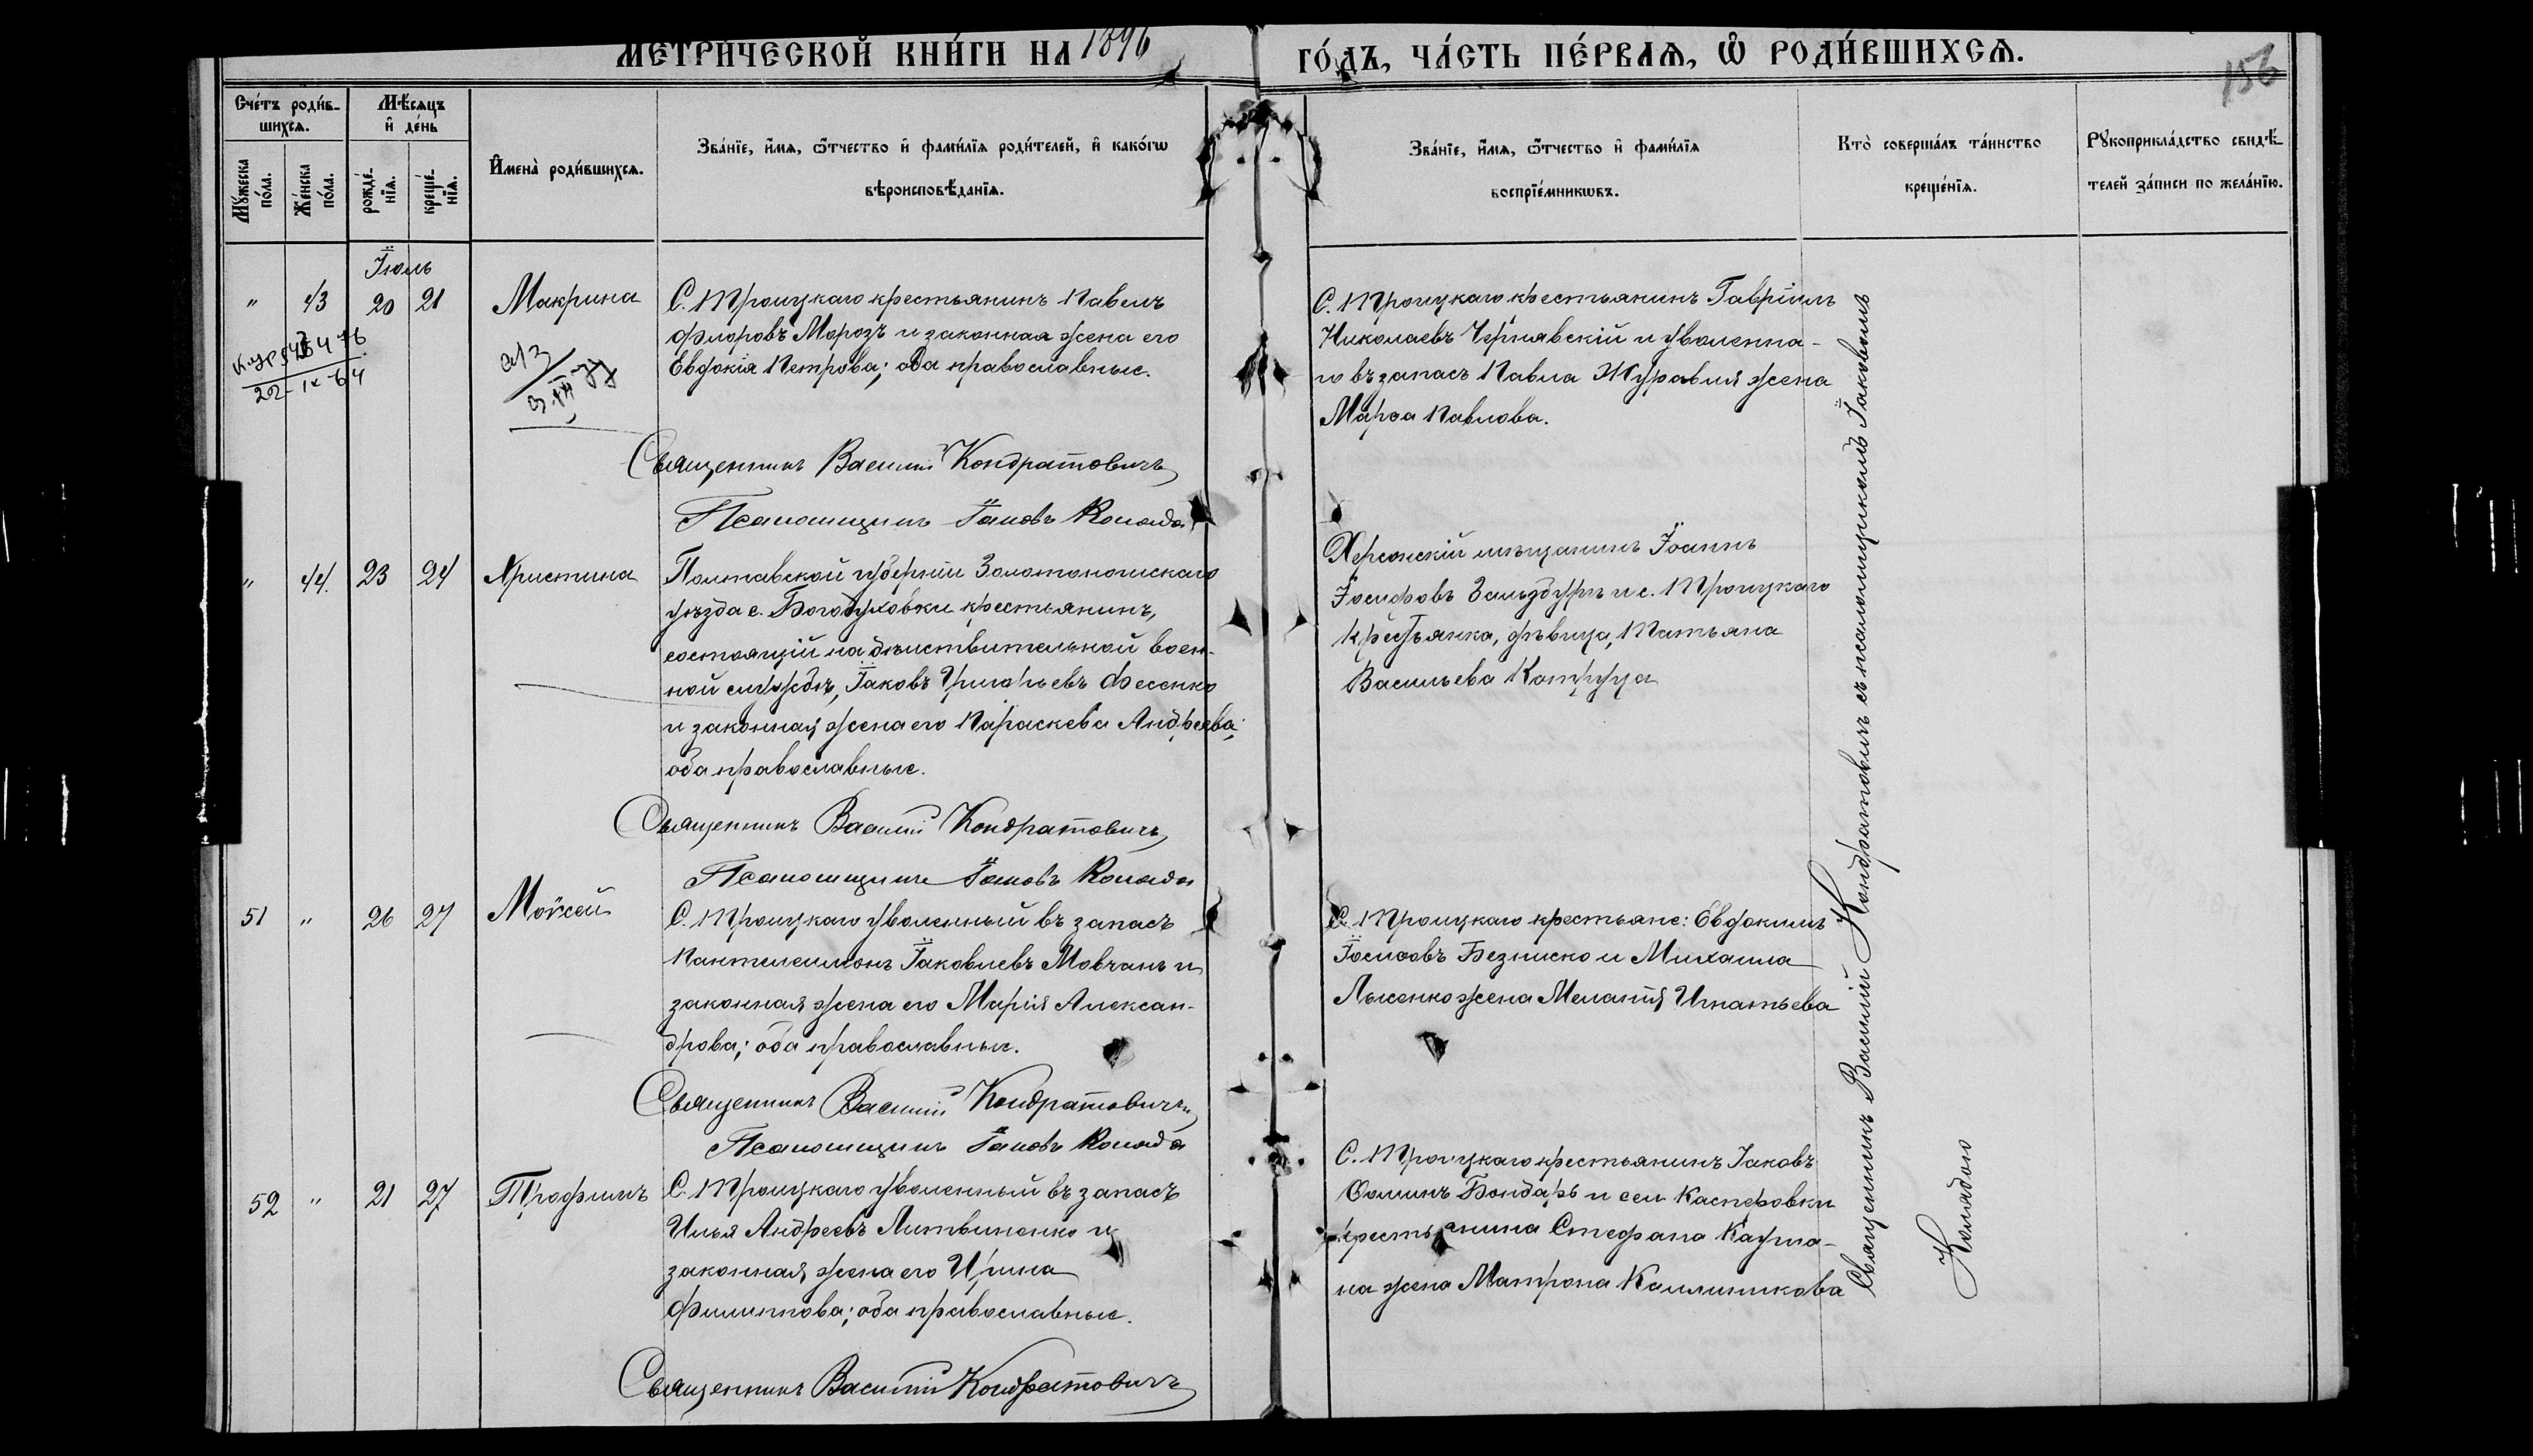 МЕТРИ́ЧЕСКОЙ КНИ́ГИ НА 1896
ГО́ДЪ, ЧА́СТЬ ПЕ́РВАѦ, Ѡ҆ РОДИ́ВШИХСѦ.
156
Сче́тъ роди́в-
шихсѧ.
Мꙋжеска
по́ла.
Же́нска
по́ла.
Мѣ́сѧцъ
и҆ де́нь
рожде́-
нїѧ.
креще́-
нїѧ.
И҆мена̀ роди́вшихсѧ.
Зва́нїе, и҆́мѧ, ѻ҆́тчество и҆ фами́лїѧ роди́телей, и҆ како́гѡ
вѣроисповѣ́данїѧ.
Зва́нїе, и҆́мѧ, ѻ҆́тчество и҆ фами́лїѧ
воспрїе́мникѡвъ.
Кто̀ соверша́лъ та́инство
креще́нїѧ.
Рꙋкоприкла́дство свидѣ́-
телей за́писи по жела́нїю.
Іюль
" 43 20 21 Макрина
С. Троицкаго крестьянинъ Павелъ
Флоровъ Морозъ и законная жена его
Евдокія Петрова; оба православные.
22-IX-64
Священникъ Василій Кондратовичъ
Псаломщикъ Іаковъ Коляда
С. Троицкаго крестьянинъ Гавріилъ
Николаевъ Чернявскій и уволенна-
го въ запасъ Павла Журавля жена
Марѳа Павлова.
" 44. 23 24 Христина
Полтавской губерніи Золотоношскаго
уѣзда с. Богодуховки крестьянинъ,
состоящій на дѣйствительной воен-
ной службѣ, Іаковъ Григорьевъ Фесенко
и законная жена его Параскева Андреева;
оба православные.
Священникъ Василій Кондратовичъ
Псаломщикъ Іаковъ Коляда
Херсонскій мѣщанинъ Іоаннъ
Іосифовъ Зальзбургъ и с. Троицкаго
крестьянка, дѣвица, Татьяна
Васильева
51 " 26 27 Моѵсей
С. Троицкаго уволенный въ запасъ
Пантелеимонъ Іаковлевъ Мовчанъ и
законная жена его Марія Алексан-
дрова; оба православные.
Священникъ Василій Кондратовичъ
Псаломщикъ Іаковъ Коляда
С. Троицкаго крестьяне: Евдокимъ
Іосифовъ Безниско и Михаила
Лысенко жена Меланія Игнатьева
52 " 21 27 Трофимъ
С. Троицкаго уволенный въ запасъ
Илья Андреевъ Литвиненко и
законная жена его Ирина
Филиппова; оба православные.
Священникъ Василій Кондратовичъ
С. Троицкаго крестьянинъ Іаковъ
Ѳоминъ Бондарь и села Касперовки
крестьянина Стефана Кауна-
на жена Матрона Каллиникова
Священникъ Василій Кондратовичъ съ псаломщикомъ Іаковомъ
Колядою